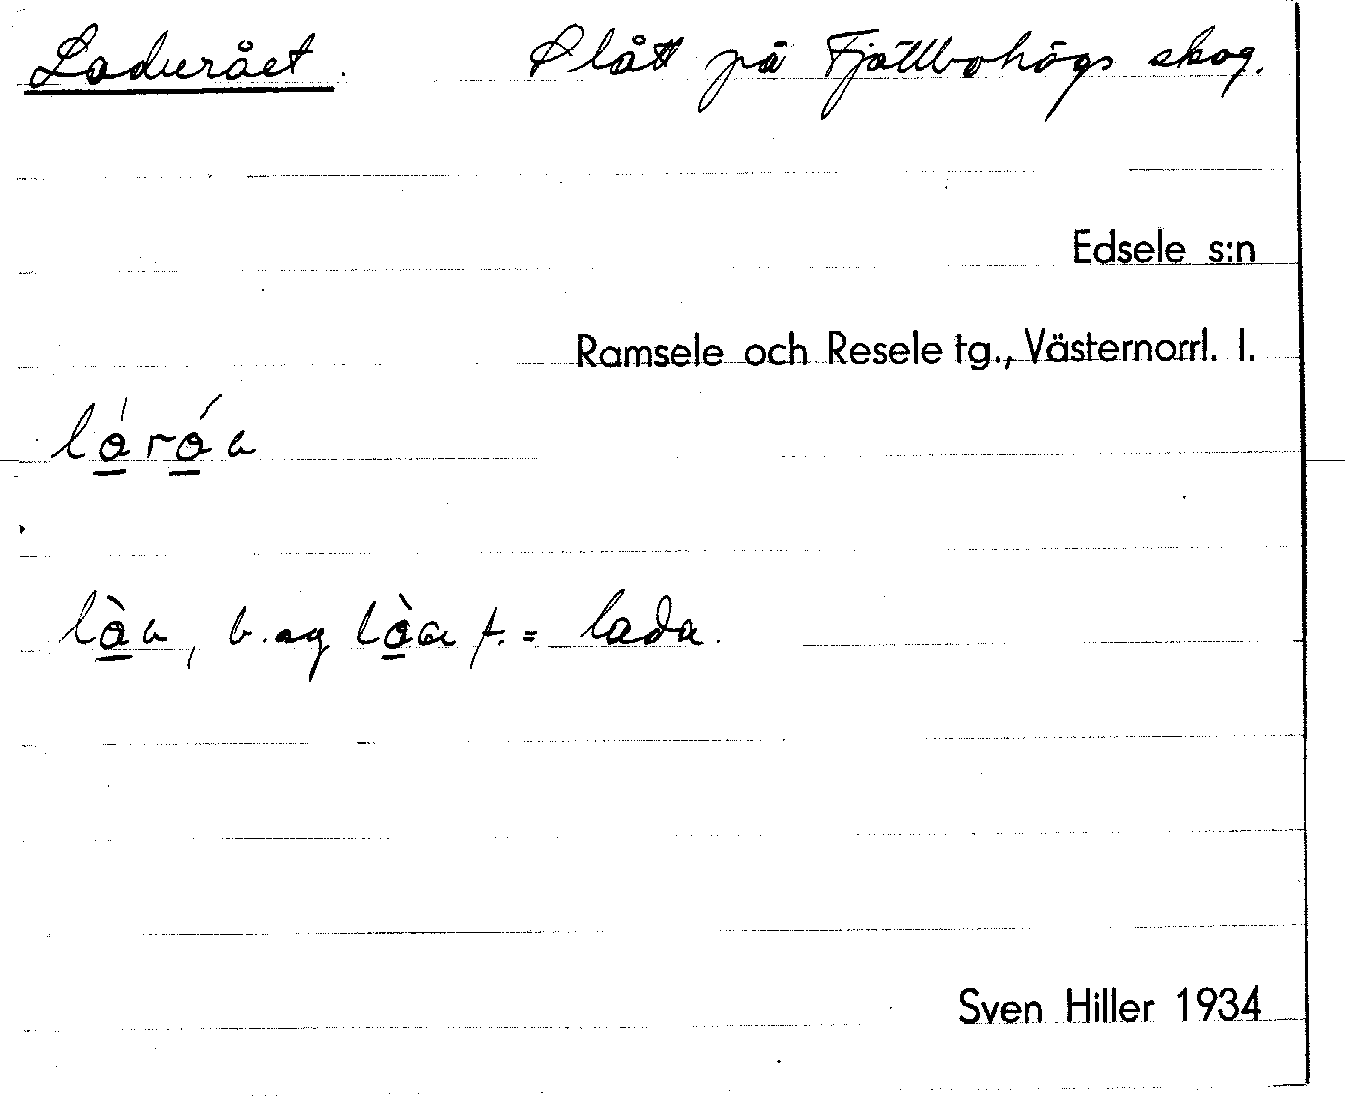 Ladurået. Slått på Fjällbohögs skog.
Edsele s:n
Ramsele och Resele tg., Västernorrl. l.
ló̲ró̲a
lò̲a, b. sg lò̲a f. = lada.
Sven Hiller 1934